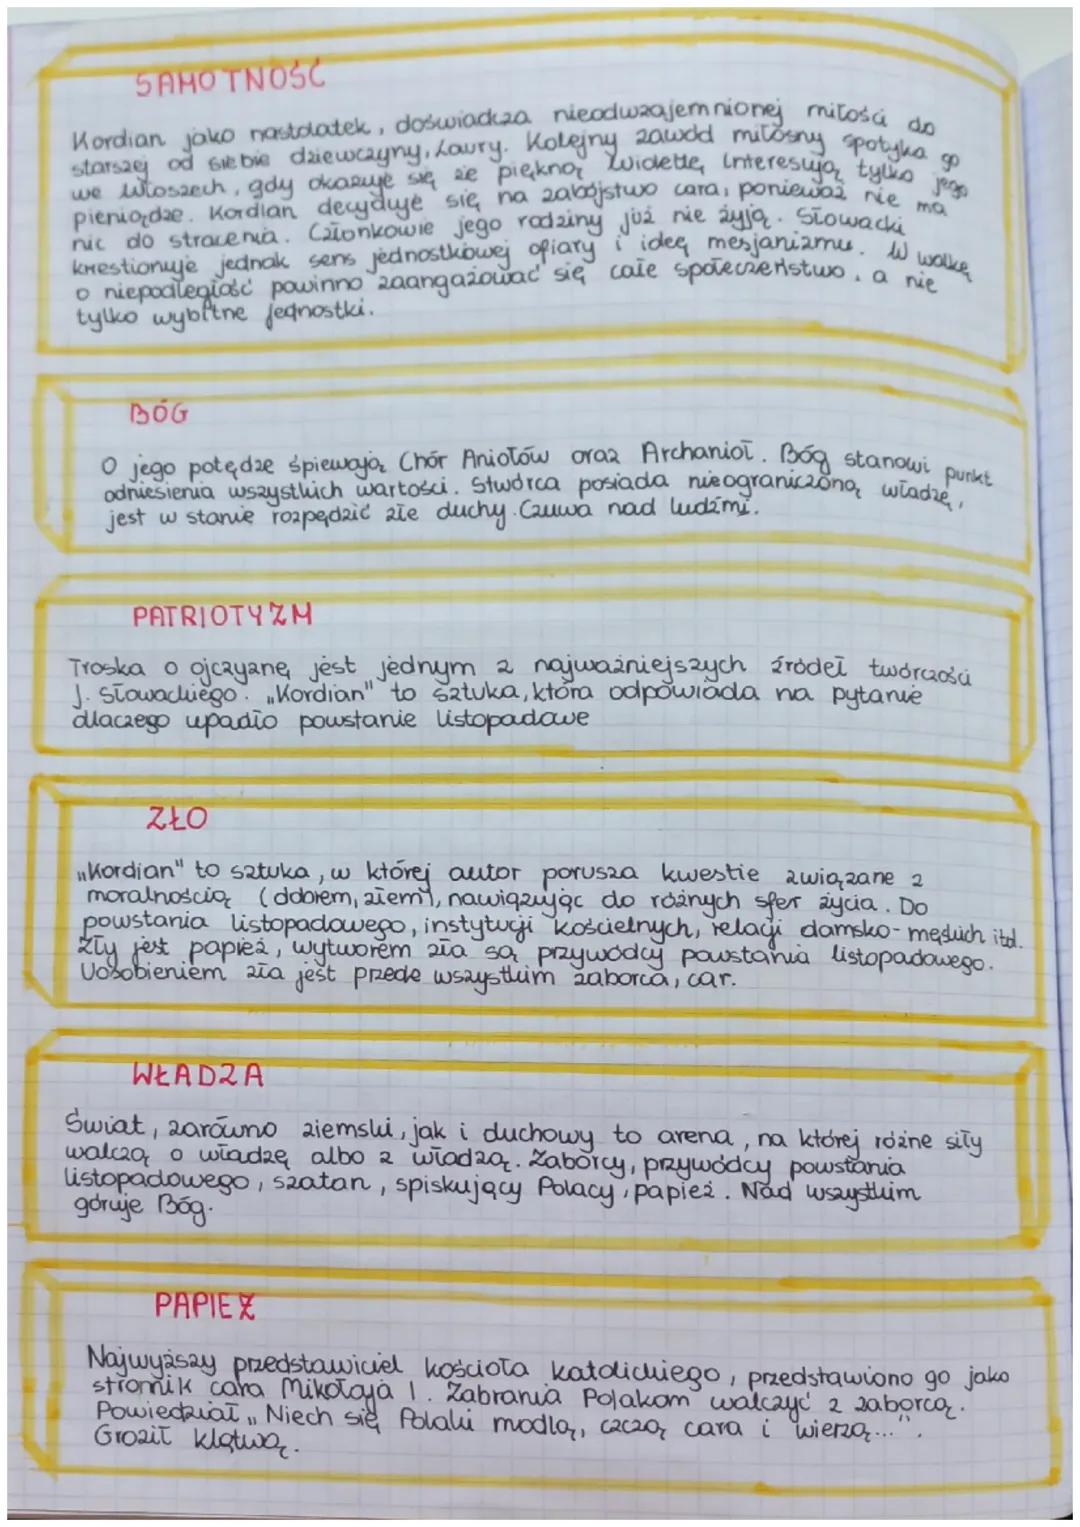 SAMOTNOŚĆ
Kordian jako nastolatek, doświadcza nieodwzajemnionej miłości do
starszej od siebie dziewczyny, Laury. Kolejny zawód miłosny spotyka go
we Włoszech, gdy okazuje się że piękną Wiolettę interesują tylko jego
pieniądze. Kordian decyduje się na zabójstwo cara, ponieważ nie ma
nic do stracenia. Członkowie jego rodziny już nie żyją. Słowacki
kwestionuje jednak sens jednostkowej ofiary i ideę mesjanizmu. W walkę
o niepodległość powinno zaangażować się całe społeczeństwo, a nie
tylko wybitne jednostki.
BÓG
O jego potędze śpiewają Chór Aniołów oraz Archanioł. Bóg stanowi punkt
odniesienia wszystkich wartości. Stwórca posiada nieograniczoną władzę,
jest w stanie rozpędzić złe duchy. Czuwa nad ludźmi.
PATRIOTYZM
Troska o ojczyznę jest jednym z najważniejszych źródeł twórczości
J. Słowackiego. „Kordian" to sztuka, która odpowiada na pytanie
dlaczego upadło powstanie listopadowe
ZŁO
„Kordian" to sztuka, w której autor porusza kwestie związane z
moralnością (dobrem, złem), nawiązując do różnych sfer życia. Do
powstania listopadowego, instytucji kościelnych, relacji damsko-męskich itd.
Zły jest papież, wytworem zła są przywódcy powstania listopadowego.
Uosobieniem zła jest przede wszystkim zaborca, car.
WŁADZA
Świat, zarówno ziemski, jak i duchowy to arena, na której różne siły
walczą o władzę albo z władzą. Zaborcy, przywódcy powstania
listopadowego, szatan, spiskujący Polacy, papież. Nad wszystkim
góruje Bóg.
PAPIEŻ
Najwyższy przedstawiciel kościoła katolickiego, przedstawiono go jako
stronnik cara Mikołaja I. Zabrania Polakom walczyć z zaborcą.
Powiedział „Niech się Polaki modlą, czczą cara i wierzą...".
Groził klątwą.